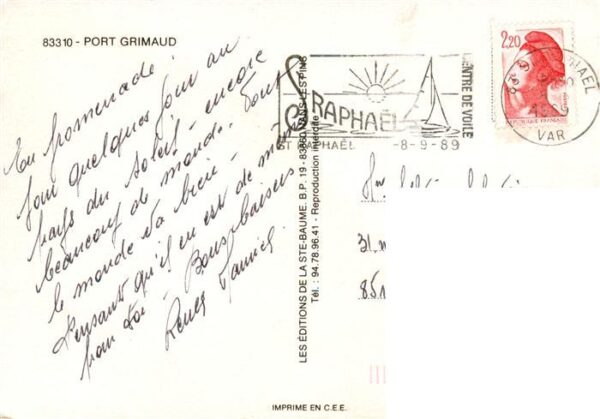 83310 - PORT GRIMAUD
En promenade
pour quelques jours au
pays du soleil - encore
beaucoup de monde. Tout
le monde va bien -
Pensant qu'il en est de même
pour toi - Bons baisers
LES ÉDITIONS DE LA STE-BAUME. B.P. 19 - 83860 NANS-LES-PINS
Tél. : 94.78.96.41 - Reproduction interdite
IMPRIME EN C.E.E.
St RAPHAËL
CENTRE DE VOILE
ST RAPHAËL -8-9-89
2,20
REPUBLIQUE FRANÇAISE
VAR
31